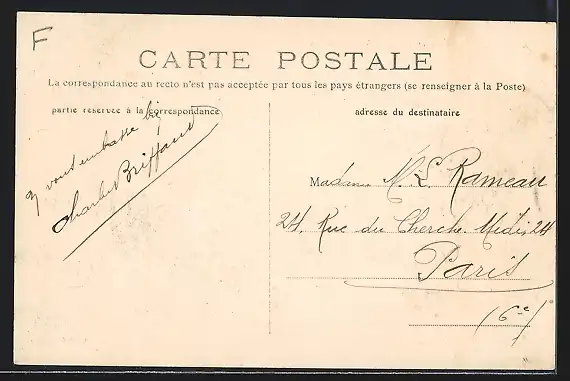 F
CARTE POSTALE
La correspondance au recto n'est pas acceptée par tous les pays étrangers (se renseigner à la Poste)
partie réservée à la correspondance
adresse du destinataire
vous embrasse
Charles Briffaut
Madame L. Rameau
24, Rue du Cherche-Midi, 24
Paris
(6e)